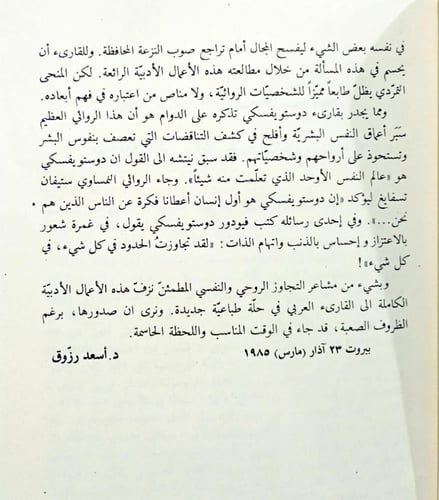 في نفسه بعض الشيء ليفسح المجال أمام تراجع صوب النزعة المحافظة. وللقارىء أن
يحسم في هذه المسألة من خلال مطالعته هذه الأعمال الأدبيّة الرائعة. لكن المنحى
التمرّدي يظلّ طابعاً مميّزاً للشخصيّات الروائيّة، ولا مناص من اعتباره في فهم أبعاده.
ومما يجدر بقارىء دوستويفسكي تذكره على الدوام هو أن هذا الروائي العظيم
سبَر أعماق النفس البشريّة وأفلح في كشف التناقضات التي تعصف بنفوس البشر
وتستحوذ على أرواحهم وشخصيّاتهم. فقد سبق نيتشه الى القول ان دوستويفسكي
هو «عالم النفس الأوحد الذي تعلّمت منه شيئاً». وجاء الروائي النمساوي ستيفان
تسفايغ ليؤكد «إن دوستويفسكي هو أول إنسان أعطانا فكرة عن الناس الذين هم
نحن...». وفي إحدى رسائله كتب فيودور دوستويفسكي يقول، في غمرة شعور
بالاعتزاز وإحساس بالذنب واتهام الذات: «لقد تجاوزتُ الحدود في كل شيء، في
كل شيء»!
وبشيء من مشاعر التجاوز الروحي والنفسي المطمئنّ نزفّ هذه الأعمال الأدبيّة
الكاملة الى القارىء العربي في حلّة طباعيّة جديدة. ونرى ان صدورها، برغم
الظروف الصعبة، قد جاء في الوقت المناسب واللحظة الحاسمة.
بيروت ٢٣ آذار (مارس) ١٩٨٥ د. أسعد رزّوق